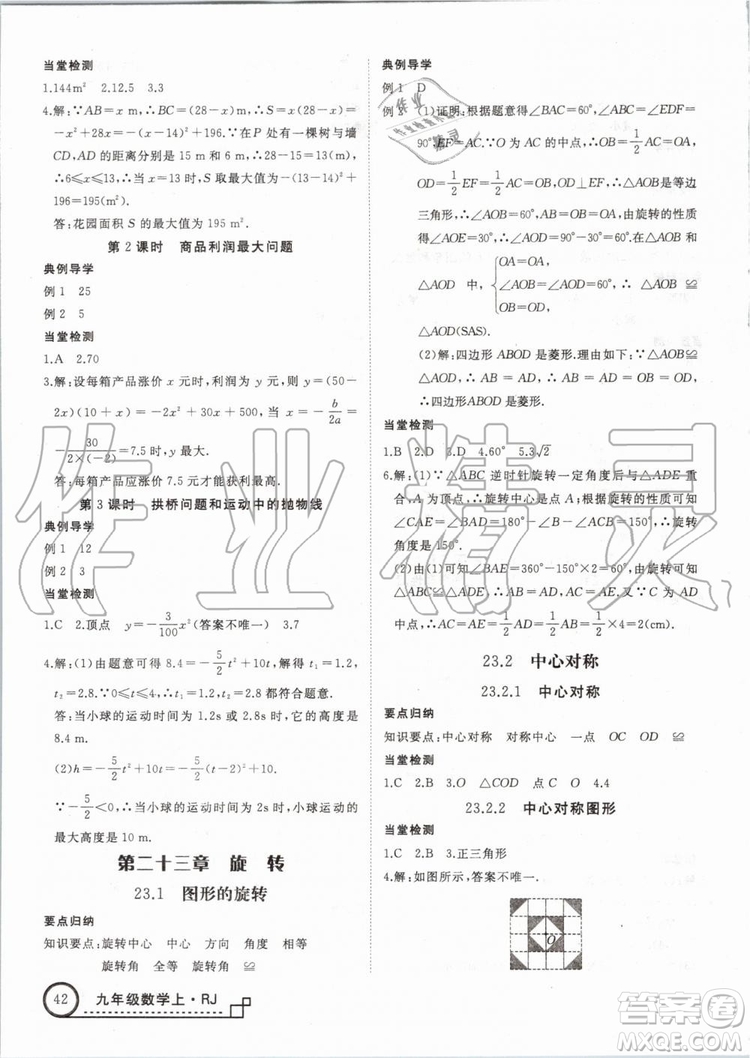 当堂检测
1.144m² 2.12.5 3.3
4.解：∵AB=x，∴BC=28-x，∴S=x(28-x)=
-x²+28x=-(x-14)²+196.∵在 P 处有一棵树与墙
CD，AD 的距离分别是 15 m 和 6 m，∴28-15=13(m)，
∴6≤x≤13，∴当 x=13 时，S 取最大值为-(13-14)²+
196=195(m²).
答：花园面积 S 的最大值为 195 m².
第 2 课时 商品利润最大问题
典例导学
例 1 25
例 2 5
当堂检测
1.A 2.70
3.解：设每箱产品涨价 x 元时，利润为 y 元，则 y=(50-
2x)(10+x)=-2x²+30x+500，当 x=-b/2a=
-30/(-2×2)=7.5 时，y 最大.
答：每箱产品应涨价 7.5 元才能获得最大利润.
第 3 课时 拱桥问题和运动中的抛物线
典例导学
例 1 12
例 2 3
当堂检测
1.C 2.顶点 y=-3/100x²(答案不唯一) 3.7
4.解：(1)由题意可得 8.4=-5/2t²+10t，解得 t₁=1.2，
t₂=2.8，∵0≤t≤4，∴t=1.2 或 2.8 都符合题意.
答：当小球的运动时间为 1.2s 或 2.8s 时，小球的高度是
8.4 m.
(2)h=-5/2t²+10t=-5/2(t-2)²+10.
∵-5/2<0，∴当小球的运动时间为 2s 时，小球运动的
最大高度是 10 m.
第二十三章 旋 转
23.1 图形的旋转
要点归纳
知识要点：旋转中心 中心 方向 角度 相等
旋转角 全等 旋转角 ≌
42 九年级数学上·RJ
典例导学
例 1 D
例 2 (1)证明：根据题意得∠BAC=60°，∠AC=∠EDF=
90°，EF=AC.∵O 为 AC 的中点，∴OA=OB=1/2AC，
OD=1/2EF=1/2AC，OD⊥EF，∴△AOB 是等边
三角形，∴OA=OD，∠AOB=60°，由旋转的性质
得∠AOE=30°，∴∠AOD=90°-30°=60°，在△AOB 和
△AOD 中，{OA=OA，
∠AOB=∠AOD=60°，
OB=OD，
∴△AOB ≌
△AOD(SAS).
(2)解：四边形 ABOD 是菱形.理由如下：∵△AOB≌
△AOD，∴AB=AD，∴AB=AD=OB=OD，∴四边形
ABOD 是菱形.
当堂检测
1.B 2.D 3.D 4.60° 5.3√2
6.解：(1)∵△ABC 逆时针旋转一定角度后与△ADE 重
合，A 为顶点，∴旋转中心是点 A；根据旋转的性质可知，
∠CAE=∠BAD=180°-∠B-∠ACB=150°，∴旋转
角度是 150°.
(2)由(1)可知，∠BAE=360°-150°×2=60°，由旋转可知
△ABC≌△ADE，∴AB=AD，AC=AE，又∵C 为 AD 的中
点，∴AC=AE=1/2AD=1/2AB=1/2×4=2(cm).
23.2 中心对称
23.2.1 中心对称
要点归纳
知识要点：中心对称 对称中心 一点 OC OD ≌
当堂检测
1.C 2.B 3.O △COD 点 C O 4.4
23.2.2 中心对称图形
当堂检测
1.C 2.B 3.正三角形
4.解：如图所示，答案不唯一.
O
作业精灵
答案圈
MXQE.COM